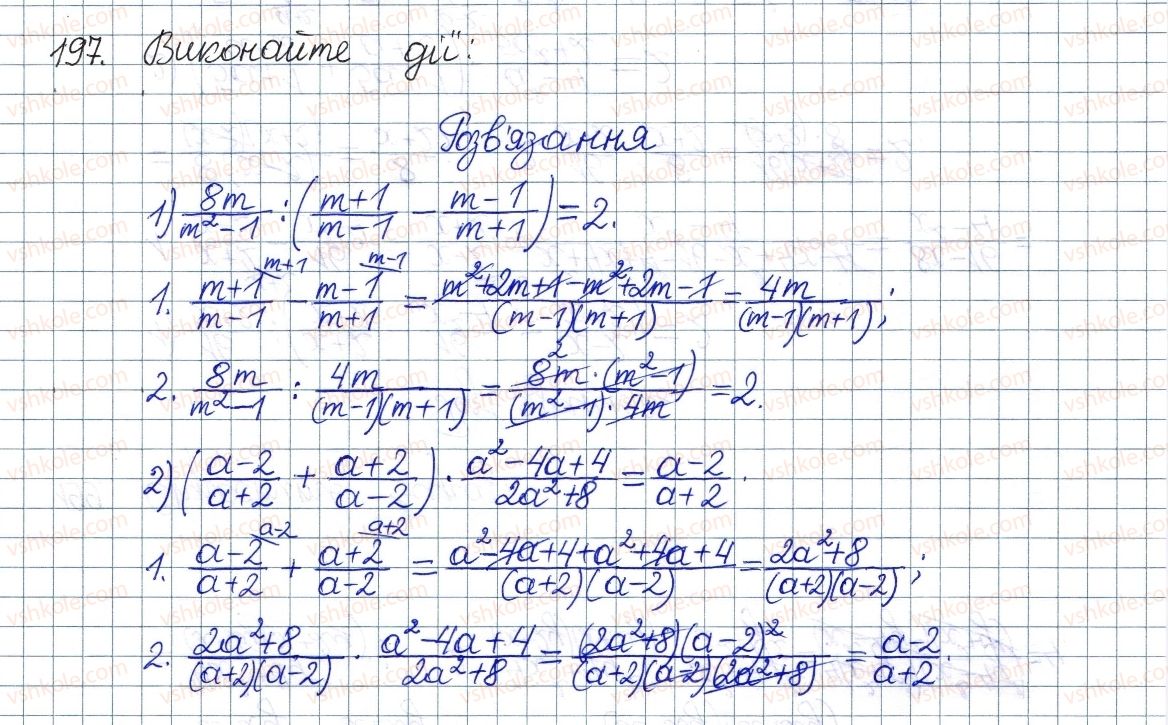 197. Виконайте дії:
Розв'язання
1) \frac{8m}{m^2-1} : \left(\frac{m+1}{m-1} - \frac{m-1}{m+1}\right) = 2.
1. \frac{m+1}{m-1}^{m+1} - \frac{m-1}{m+1}^{m-1} = \frac{m^2+2m+1-m^2+2m-1}{(m-1)(m+1)} = \frac{4m}{(m-1)(m+1)};
2. \frac{8m}{m^2-1} : \frac{4m}{(m-1)(m+1)} = \frac{8m^2 \cdot (m^2-1)}{(m^2-1) \cdot 4m} = 2.
2) \left(\frac{a-2}{a+2} + \frac{a+2}{a-2}\right) \cdot \frac{a^2-4a+4}{2a^2+8} = \frac{a-2}{a+2}.
1. \frac{a-2}{a+2}^{a-2} + \frac{a+2}{a-2}^{a+2} = \frac{a^2-4a+4+a^2+4a+4}{(a+2)(a-2)} = \frac{2a^2+8}{(a+2)(a-2)};
2. \frac{2a^2+8}{(a+2)(a-2)} \cdot \frac{a^2-4a+4}{2a^2+8} = \frac{(2a^2+8)(a-2)^2}{(a+2)(a-2)(2a^2+8)} = \frac{a-2}{a+2}.
vshkole.com